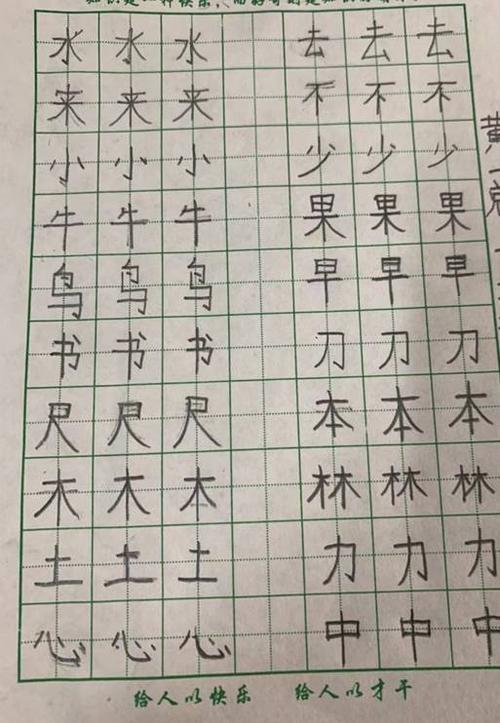 水 水 水 去 去 去
来 来 来 不 不 不
小 小 小 少 少 少
牛 牛 牛 果 果 果
鸟 鸟 鸟 早 早 早
书 书 书 刀 刀 刀
尺 尺 尺 本 本 本
木 木 木 林 林 林
土 土 土 力 力 力
心 心 心 中 中 中
给人以快乐 给人以才干